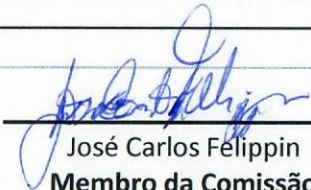 José Carlos Felippin
Membro da Comissão